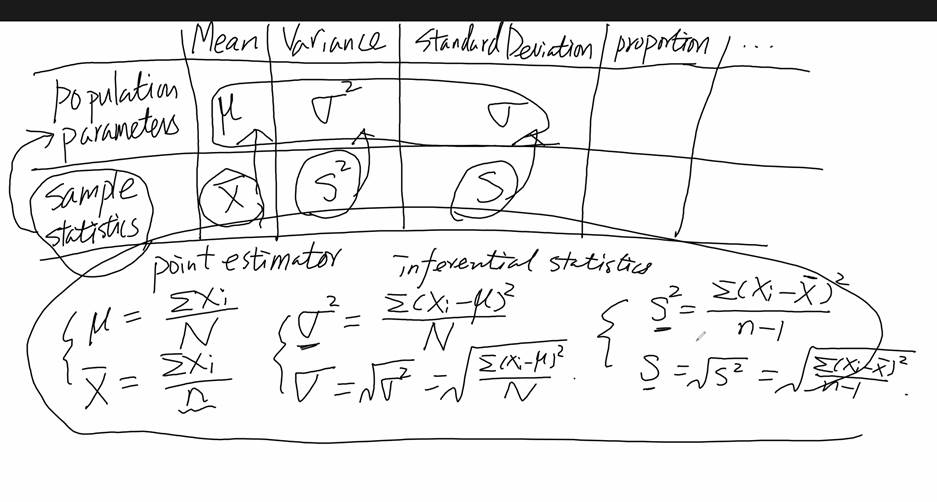 Mean Variance Standard Deviation proportion ...
population parameters μ σ² σ
sample statistics X̄ S² S
point estimator inferential statistics
μ = ΣXi / N
X̄ = ΣXi / n
σ² = Σ(Xi-μ)² / N
σ = √σ² = √(Σ(Xi-μ)² / N)
S² = Σ(Xi-X̄)² / n-1
S = √S² = √(Σ(Xi-X̄)² / n-1)